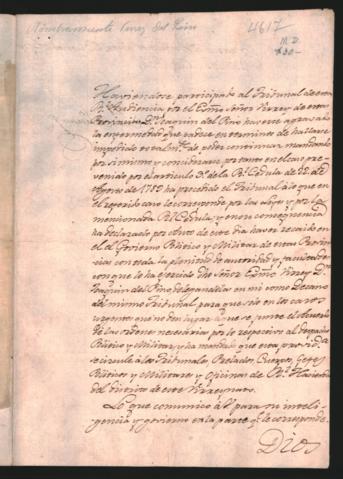 Nombramiento Virrey del Pino
4617
Haviendose participado al Tribunal de esta
Rl. Audiencia por el Exmo Señor Virrey de estas
Provincias Dn. Joaquin del Pino haverse agravado
la enfermedad que padece en terminos de hallarse
impedido totalmte. de poder continuar mandando
por si mismo y considerarse por tanto en el caso pre-
venido por el articulo 2o. de la Rl. Cedula de 22 de
Agosto de 1789 ha procedido el Tribunal a lo que en
el referido caso le corresponde por las Leyes y por la
mencionada Rl. Cedula, y en su consequencia
ha declarado por Auto de este dia haver recaido en
el el Govierno Politico y Militar de estas Provin-
cias con toda la plenitud de autoridad y facultades
con que lo ha exercido dho Señor Exmo Virrey Dn.
Joaquin del Pino delegandola en mi como Decano
del mismo Tribunal para que solo en los casos
urgentes que no den lugar a que se junte el Acuerdo
de las ordenes necesarias por lo respectivo al despacho
Politico y Militar, y ha mandado que esta provida.
se circule a los Tribunales, Prelados, Cuerpos, Gefes
Politicos y Militares y Oficinas de Rl. Hacienda
del distrito de este Virreynato.
Lo que comunico a Vd. para su inteli-
gencia, y govierno en la parte qe. le corresponde.
Dios